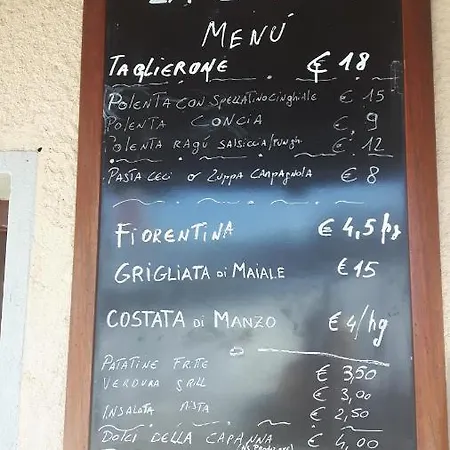 MENÚ
TAGLIERONE € 18
POLENTA CON SPELLATINO CINGHIALE € 15
POLENTA CONCIA € 9
POLENTA RAGÚ SALSICCIA/FUNGHI € 12
PASTA CECI or ZUPPA CAMPAGNOLA € 8
FIORENTINA € 4,5 hg
GRIGLIATA DI MAIALE € 15
COSTATA DI MANZO € 4/hg
PATATINE FRITTE € 3,50
VERDURA GRILL € 3,00
INSALATA MISTA € 2,50
DOLCI DELLA CAPANNA € 4,00